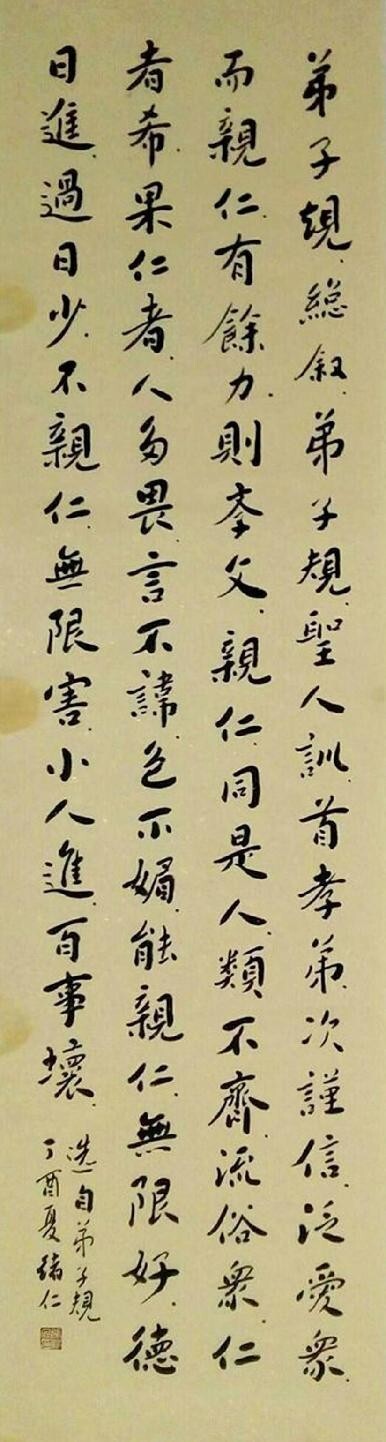 弟子規總叙弟子規聖人訓首孝弟次謹信泛愛衆
而親仁有餘力則孝文親仁同是人類不齊流俗衆仁
者希果仁者人多畏言不諱色不媚能親仁無限好德
日進過日少不親仁無限害小人進百事壞
选自弟子規
丁酉夏緒仁